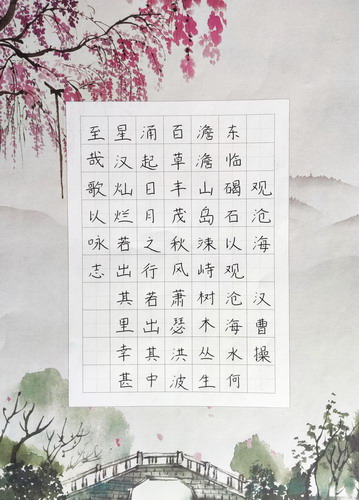 观沧海 汉 曹操
东临碣石以观沧海水何
澹澹山岛竦峙树木丛生
百草丰茂秋风萧瑟洪波
涌起日月之行若出其中
星汉灿烂若出其里幸甚
至哉歌以咏志